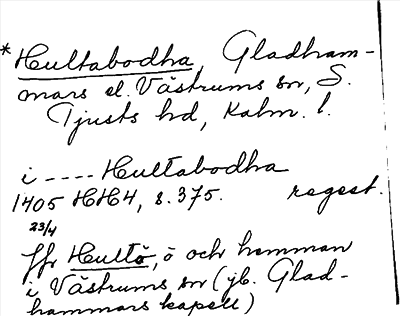 * Hultabodha, Gladham-
mars el. Västrums sn, S.
Tjusts hd, Kalm. l.
i ---- Hultabodha
1405 HH4, s. 375. regest.
23/4
ffr Hultö, ö och hemman
i Västrums sn (jb. Glad-
hammars kapell)